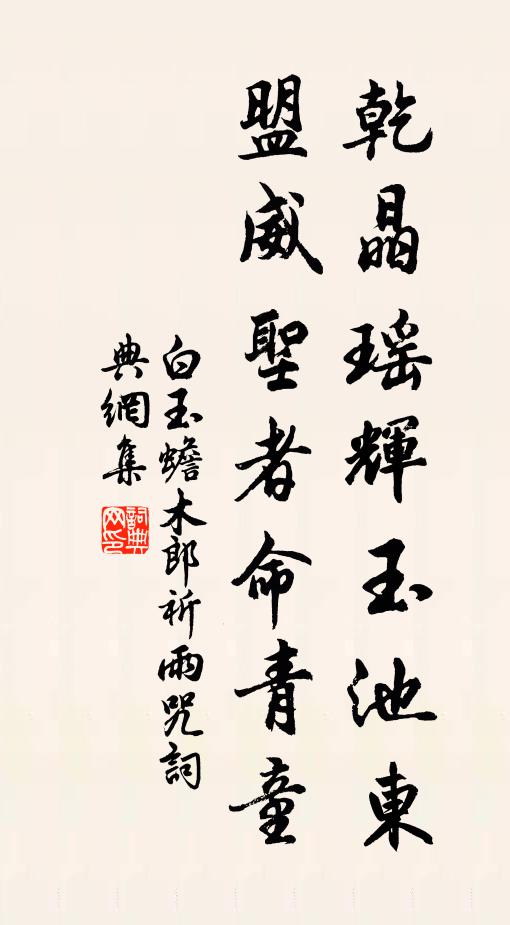 乾晶瑶輝玉池東
盟威聖者命青童
白玉蟾木郎祈雨咒詞
典網集
詞典網印